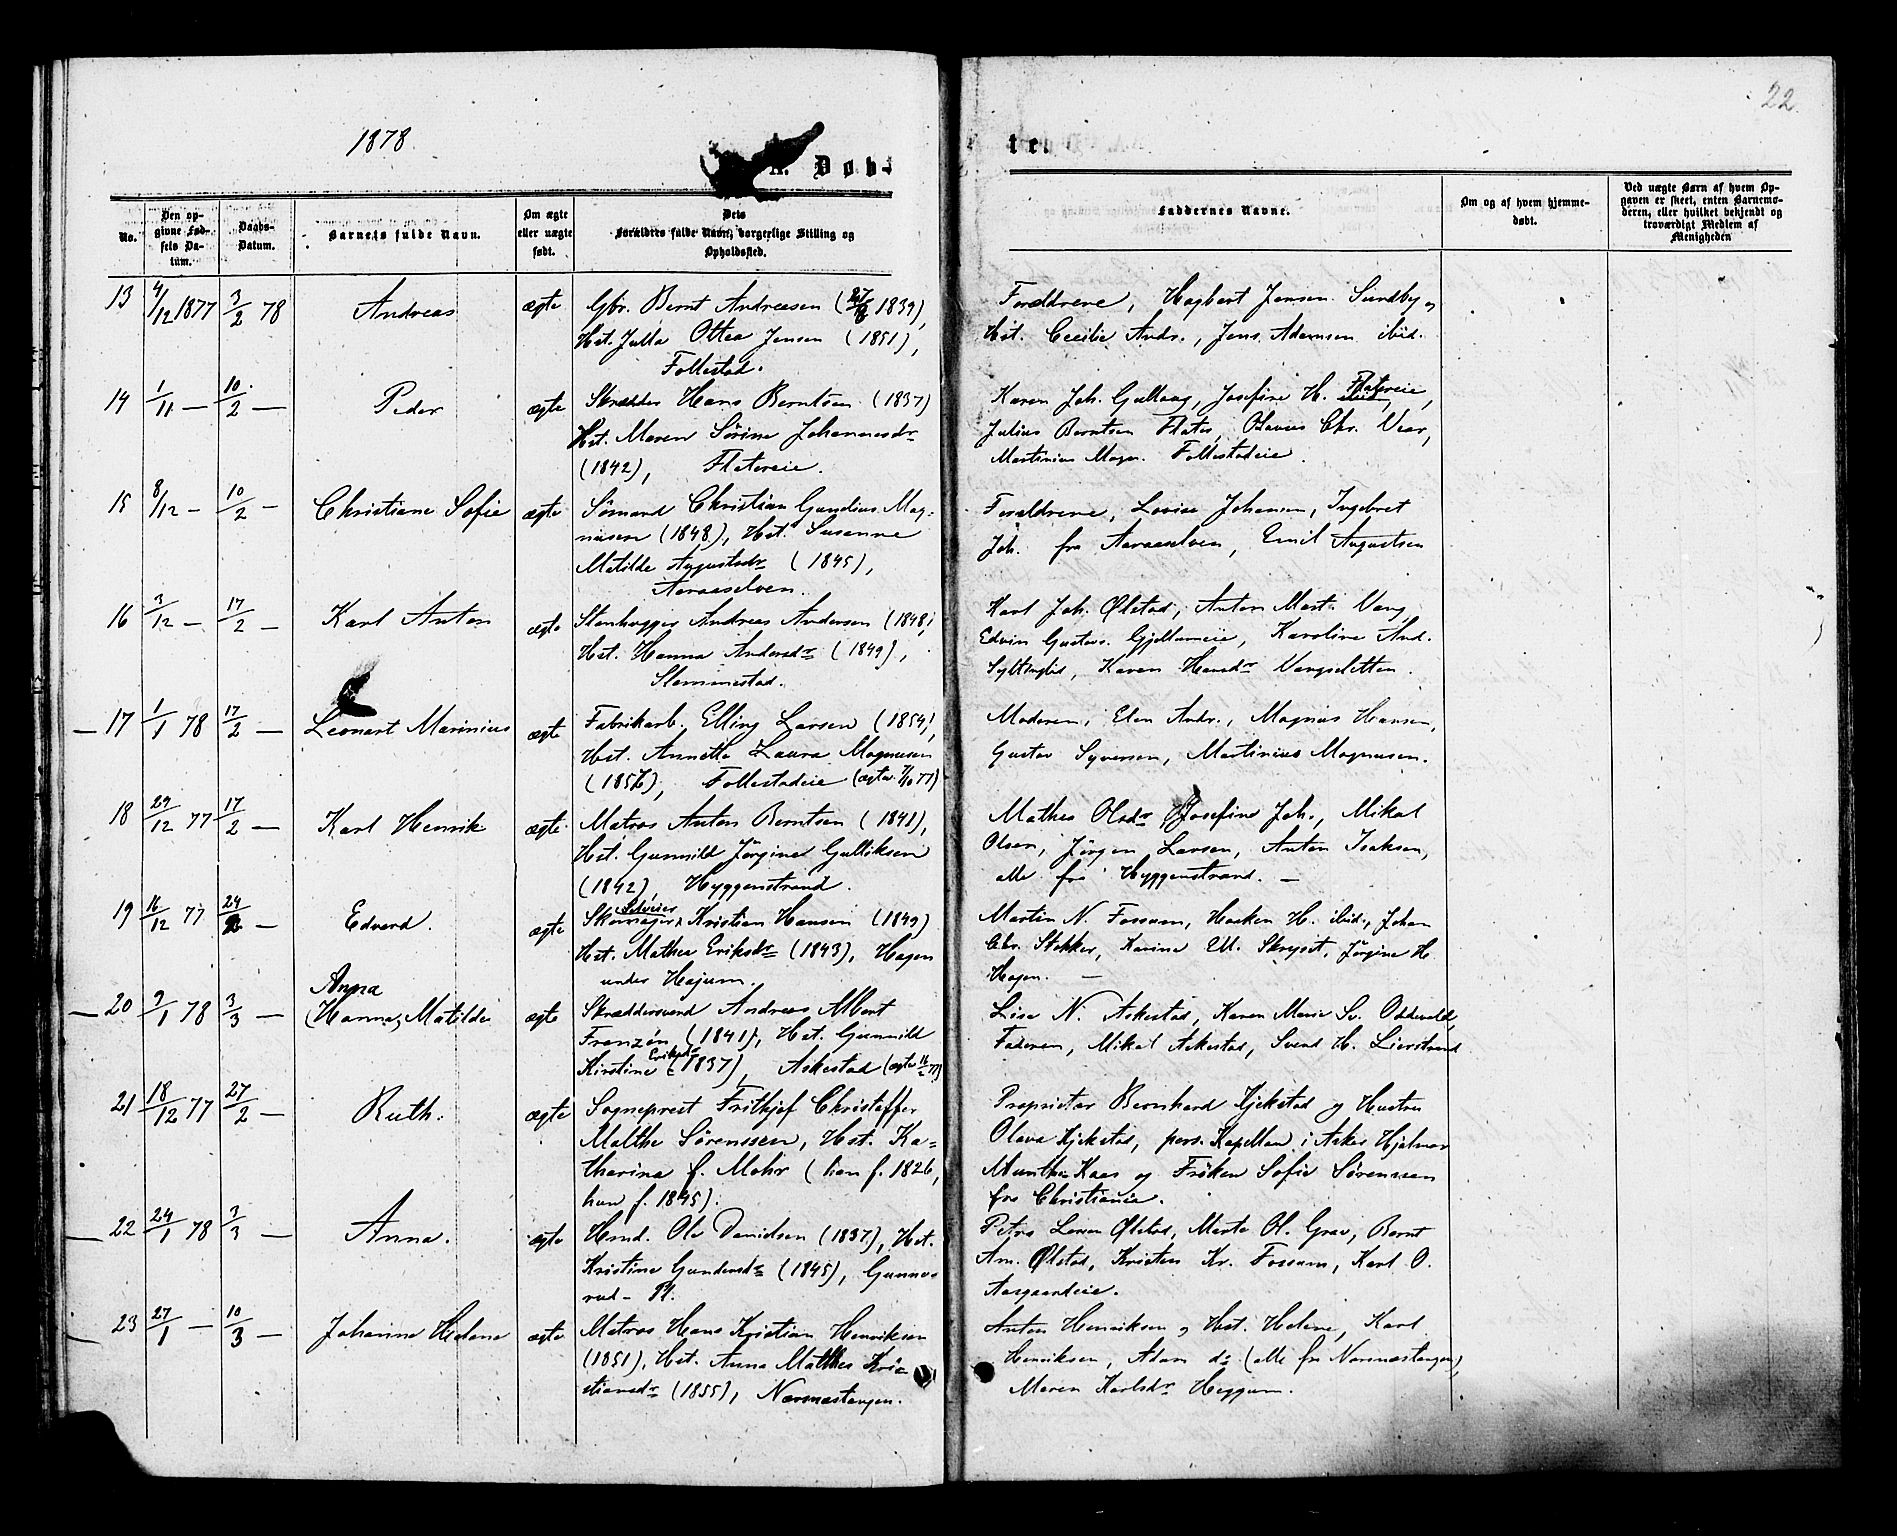 22.
1878
A. Døb-
te.
No.
Den op-
givne Fød-
sels Da-
tum.
Daabs-
Datum.
Barnets fulde Navn.
Om ægte
eller uægte
født.
Dets
Forældres fulde Navn, borgerlige Stilling og
Opholdssted.
Faddernes Navne.
Om og af hvem hjemme-
døbt.
Ved uægte Børn af hvem Op-
gaven er skeet, enten Barnemo-
deren, eller hvilket bekjendt og
troværdigt Medlem af
Menigheden
13 4/12 1877 3/2 78 Andreas ægte Gbr. Bernt Andreasen (1839),
Hst. Julla Ottea Jensen (1851),
Follestad.
Forældrene, Hagbart Jensen Sundby og
Hst. Cecilie Andr., Jens Adamsen ibid.
14 1/11 — 10/2 — Peder ægte Skrædder Hans Berntsen (1837)
Hst. Maren Sørine Johannesdr
(1842), Flatereie.
Karen Joh. Gullaug, Josefine H. Flatereie,
Julius Berntsen Flater, Olavius Chr. Vear,
Martinius Magn. Follestadeie.
15 8/12 — 10/2 — Christiane Sofie ægte Sømand Christian Gundius Mag-
nusen (1848), Hst. Susanne
Matilde Augustsdr (1845),
Aaraaselven.
Forældrene, Lovise Johansen, Ingebret
Joh. fra Aaraaselven, Emil Augustsen
16 3/12 — 17/2 — Karl Anton ægte Stenhugger Andreas Andersen (1848)
Hst. Hanna Andersdr (1849),
Slemmestad.
Karl Joh. Ølstad, Anton Mart. Vang,
Edvin Gustavs. Gjeltumeie, Karoline And.
Karen Hansdr Vangsletten.
17 1/1 78 17/2 — Leonart Marinius ægte Fabrikarb. Elling Larsen (1854),
Hst. Annette Laura Magnusen
Follestadeie
Moderen, Elen Andr., Magnus Hansen,
Gustav Syversen, Martinius Magnusen.
18 29/12 77 17/2 — Karl Henrik ægte Matros Anton Berntsen (1841),
Hst. Gunnild Jørgine Gulliksen
(1842), Hyggenstrand.
Mathea Olsdr, Josefine Joh., Mikal
Olsen, Jørgen Larsen, Anton Isaksen,
alle fra Hyggenstrand. —
19 16/12 77 24/2 — Edvard. ægte Selveier Kristian Hansen (1849)
Hst. Mathea Eriksdr (1843), Hagen
under Højum.
Martin N. Fossum, Haaken H. ibid., Johan
Chr. Stokker, Karine M. Skryset, Jørgine H.
Hagen. —
20 9/1 78 3/3 — Anna
(Hanna) Matilde ægte Skræddersvend Andreas Albert
Franzén (1841), Hst. Gunnild
Kirstine Eriksdr (1837), Askestad
Lise N. Askestad, Karen Marie Sv. Oddevald,
Faderen, Mikal Askestad, Svend H. Lierstrand
21 18/12 77 27/2 — Ruth. ægte Sogneprest Frithjof Christoffer
Malthe Sørenssen, Hst. Ka-
tharina f. Mohr (han f. 1826,
hun f. 1845).
Proprietær Bernhard Kjekstad og Hustru
Olava Kjekstad, pers. Kapellan i Asker Hjalmar
Munthe Kaas og Frøken Sofie Sørenssen
fra Christiania.
22 24/1 78 3/3 — Anna. ægte Hmd. Ole Danielsen (1837), Hst.
Kristine Gundersdr (1845), Gunnes-
rud- Pl.
Petra Larsen Ølstad, Marte Ol. Grav, Bernt
Am. Ølstad, Kristen Kr. Fossum, Karl O.
Aasgaardeie.
23 27/1 — 10/3 — Johanne Helene ægte Matros Hans Kristian Henriksen
(1851), Hst. Anna Mathea Kri-
stiansdr (1855), Nærsnæstangen.
Anton Henriksen og Hst. Helene, Karl
Henriksen, Adam do (alle fra Nærsnæstangen),
Maren Karlsdr Heggum.